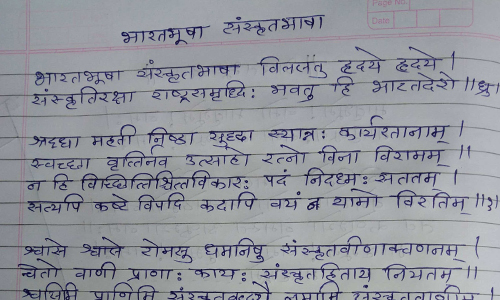 Page No.
Date
भारतभूषा संस्कृतभाषा
भारतभूषा संस्कृतभाषा विलसतु हृदये हृदये ।
संस्कृतिरक्षा राष्ट्रसमृद्धिः भवतु हि भारतदेशे ॥ध्रु।
श्रद्धा महती निष्ठा सुदृढा स्यान्नः कार्यरतानाम् ।
स्वच्छा वृत्तिर्नव उत्साहो यत्नो विना विरामम् ॥
न हि विच्छित्तिश्चित्तविकारः पदं निदध्मः सततम् ।
सत्यपि कष्टे विपदि कदापि वयं न यामो विरतिम् ॥१॥
श्वासे श्वासे रोमसु धमनिषु संस्कृतवीणाक्वणनम् ।
चेतो वाणी प्राणाः कायः संस्कृतहिताय नियतम् ॥
प्राणिमि